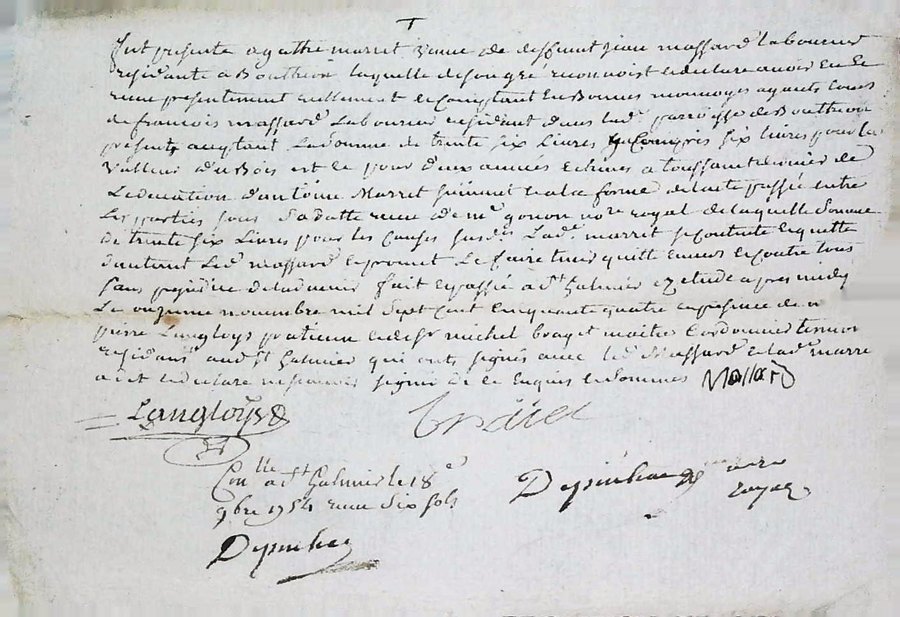 Fut presente agathe marret veuve de deffunt jean massard laboureur
residante a Bouthéon laquelle de son gre reconnoist et declare avoir eu et
receu presentement reellement et comptant en Bonnes monnoyes ayants cours
de francois massard Laboureur residant dans lad. parroisse de Bouthéon
present acceptant La somme de trente six Livres y compris six livres pour la
Valleur du Bois et ce pour deux années echues a toussaint dernier de
Leducation d'antoine Marret suivant et a la forme de lacte passé entre
Les parties sous sa datte receu de me gonon nore royal de laquelle somme
de trente six Livres pour les causes susd. Lad. marret se contente et quitte
dautant Led. massard et promet Le faire tenir quitte envers et contre tous
sans prejudice de ladvenir fait et passé a St Galmier ez etude apres midy
Le onzieme novembre mil sept cent cinquante quatre en presence de
pierre Langloys praticien et de sr michel brayet maitre Cordonnier temoins
residants aud. St Galmier qui ont signés avec led. Massard et lad. marret
a dit et declaré ne scavoir signer de ce enquis et sommés Massard
Langloys
Conlle a St Galmier le 18e
9bre 1754 receu six sols
nore
royal